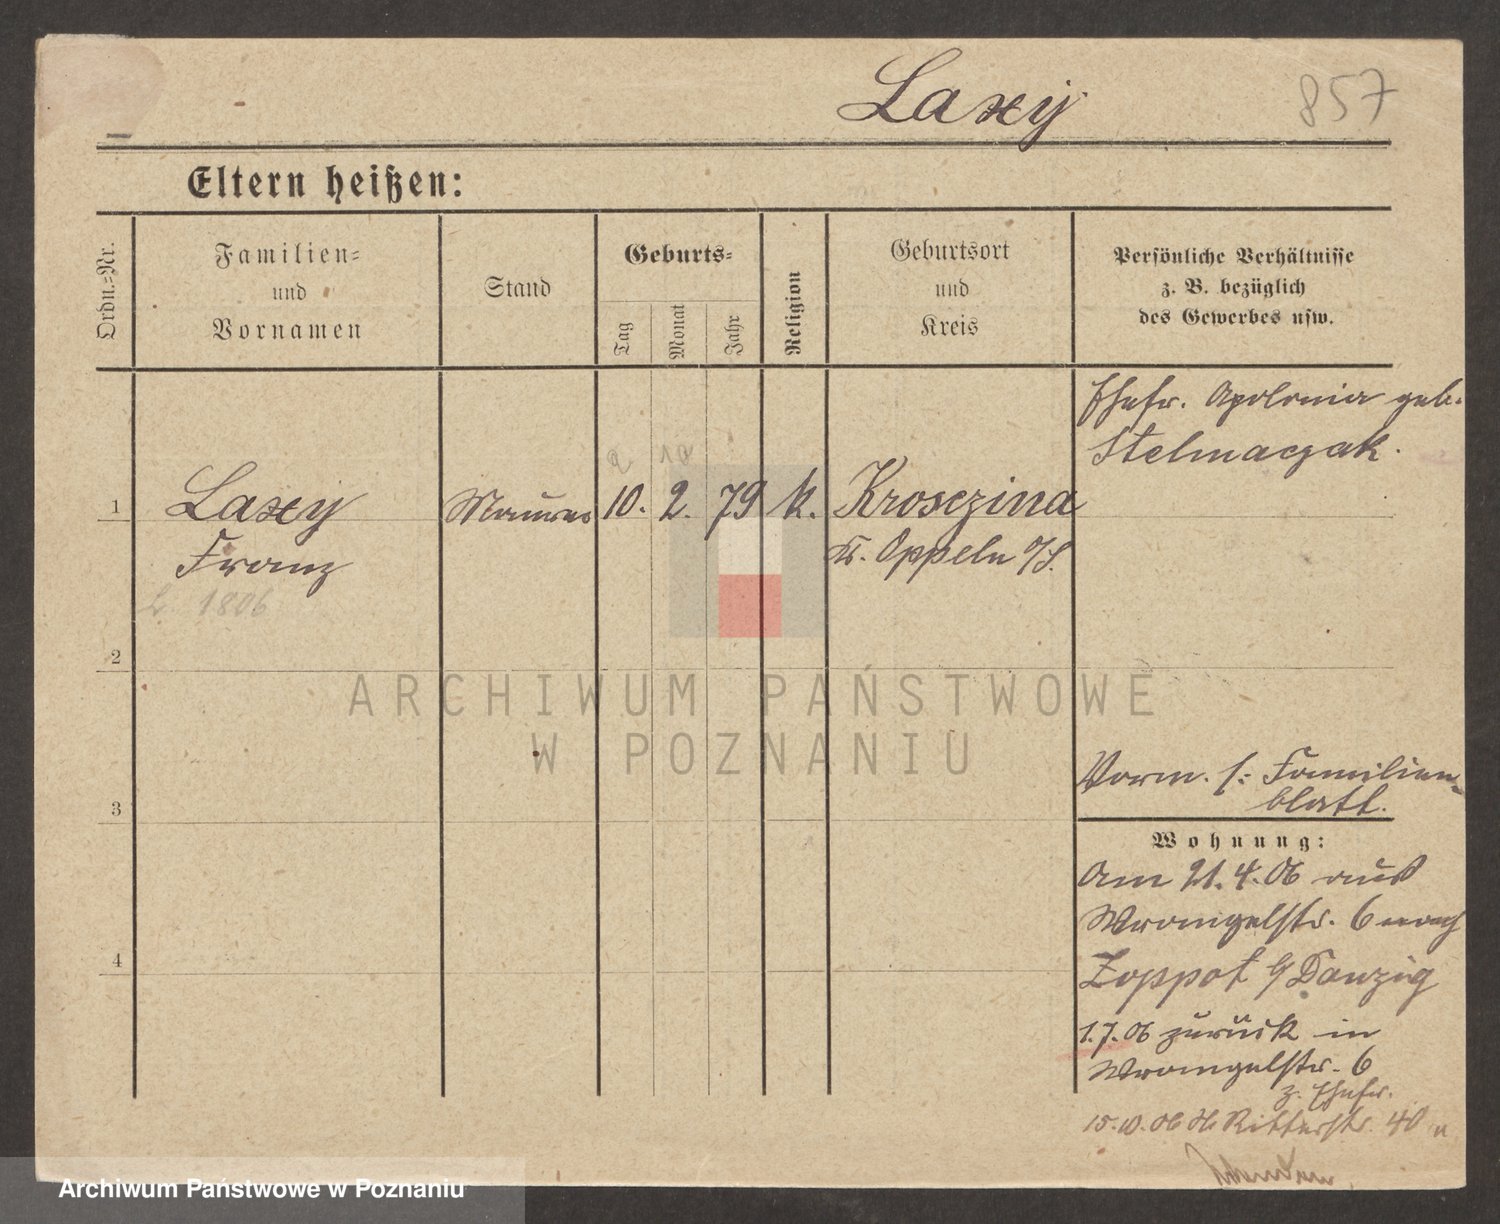 Laxy
857
Eltern heißen:
Ordn.-Nr.
Familien-
und
Vornamen
Stand
Geburts-
Tag
Monat
Jahr
Religion
Geburtsort
und
Kreis
Persönliche Verhältnisse
z. B. bezüglich
des Gewerbes usw.
Ehefr. Apolonia geb.
Stelmaczak.
1
Laxy
Maurer
10.
2.
79
k.
Krosczina
Franz
Kr. Oppeln O/S.
1806
2
ARCHIWUM PAŃSTWOWE
W POZNANIU
Vorm. s. Familien-
blatt.
3
Wohnung:
Am 21.4.06 aus
Wrangelstr. 6 nach
4
Zoppot b/Danzig
1.7.06 zurück in
Wrangelstr. 6
z. Ehefr.
15.10.06 Ritterstr. 40
Archiwum Państwowe w Poznaniu